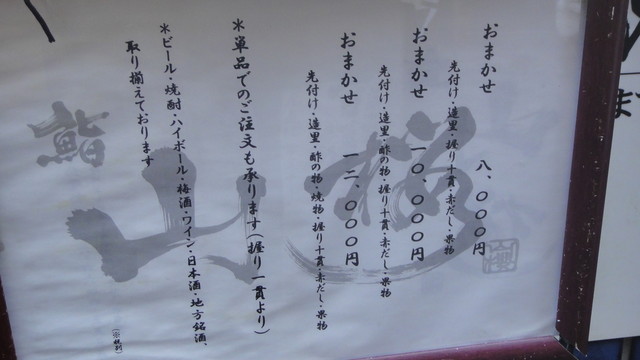 おまかせ 八、〇〇〇円
先付け・造里・握り十貫・赤だし・果物
おまかせ 一〇、〇〇〇円
先付け・造里・酢の物・握り十貫・赤だし・果物
おまかせ 一二、〇〇〇円
先付け・造里・酢の物・焼物・握り十貫・赤だし・果物
＊単品でのご注文も承ります(握り一貫より)
＊ビール・焼酎・ハイボール・梅酒・ワイン・日本酒・地方銘酒、
取り揃えております
(※税別)
鮨
山桜
ま